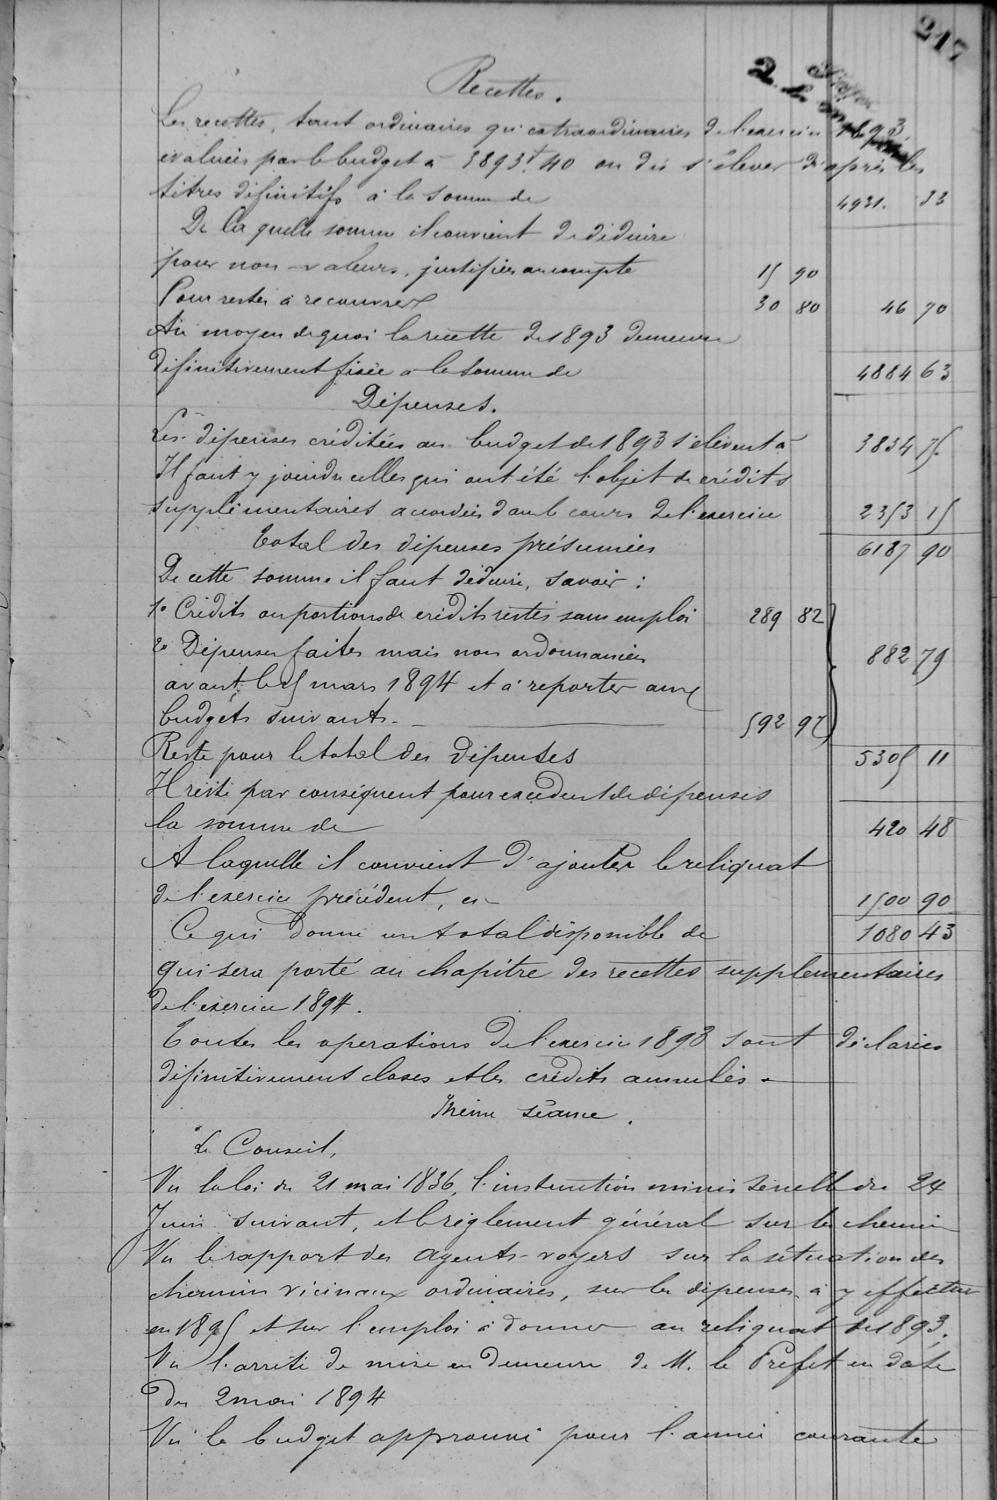 217
Recettes.
Les recettes, tant ordinaires qu'extraordinaires de l'exercice 1893,
évaluées par le budget à 3893f.40 on dû s'élever d'après les
titres définitifs à la somme de 4931. 33
De laquelle somme il convient de déduire
pour non-valeurs, justifiées au compte 15 90
Pour restes à recouvrer 30 80 46 70
Au moyen de quoi la recette de 1893 demeure
définitivement fixée à la somme de 4884 63
Dépenses.
Les dépenses créditées au budget de 1893 s'élèvent à 3834 75
Il faut y joindre celles qui ont été l'objet de crédits
supplémentaires accordés dans le cours de l'exercice 2353 15
Total des dépenses présumées 6187 90
De cette somme il faut déduire, savoir :
1o Crédits ou portions de crédits restés sans emploi 289 82
2o Dépenses faites mais non ordonnancées 882 79
avant le 15 mars 1894 et à reporter aux
budgets suivants - 592 97
Reste pour le total des dépenses 5305 11
Il reste par conséquent pour excédent de dépenses
la somme de 420 48
A laquelle il convient d'ajouter le reliquat
de l'exercice précédent, ci - 1500 90
Ce qui donne un total disponible de 1080 43
qui sera porté au chapitre des recettes supplémentaires
de l'exercice 1894.
Toutes les opérations de l'exercice 1893 sont déclarées
définitivement closes et les crédits annulés.
Même séance.
Le Conseil,
Vu la loi du 21 mai 1836, l'instruction ministérielle du 24
Juin suivant, et le règlement général sur les chemins
Vu le rapport des agents-voyers sur la situation des
chemins vicinaux ordinaires, sur les dépenses à y effectuer
en 1895 et sur l'emploi à donner au reliquat de 1893.
Vu l'arrêté de mise en demeure de M. le Préfet en date
du 2 mai 1894
Vu le budget approuvé pour l'année courante